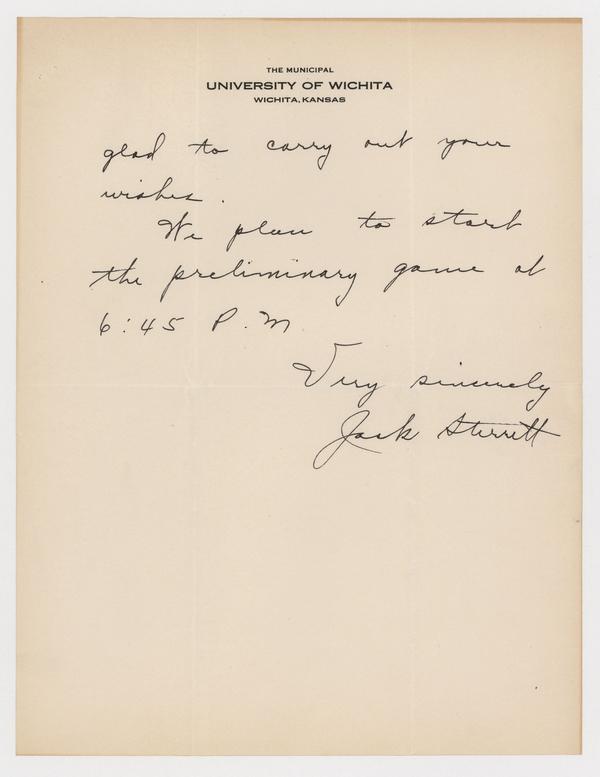 THE MUNICIPAL
UNIVERSITY OF WICHITA
WICHITA, KANSAS
glad to carry out your
wishes.
We plan to start
the preliminary game at
6:45 P.M
Very sincerely
Jack Sterrett